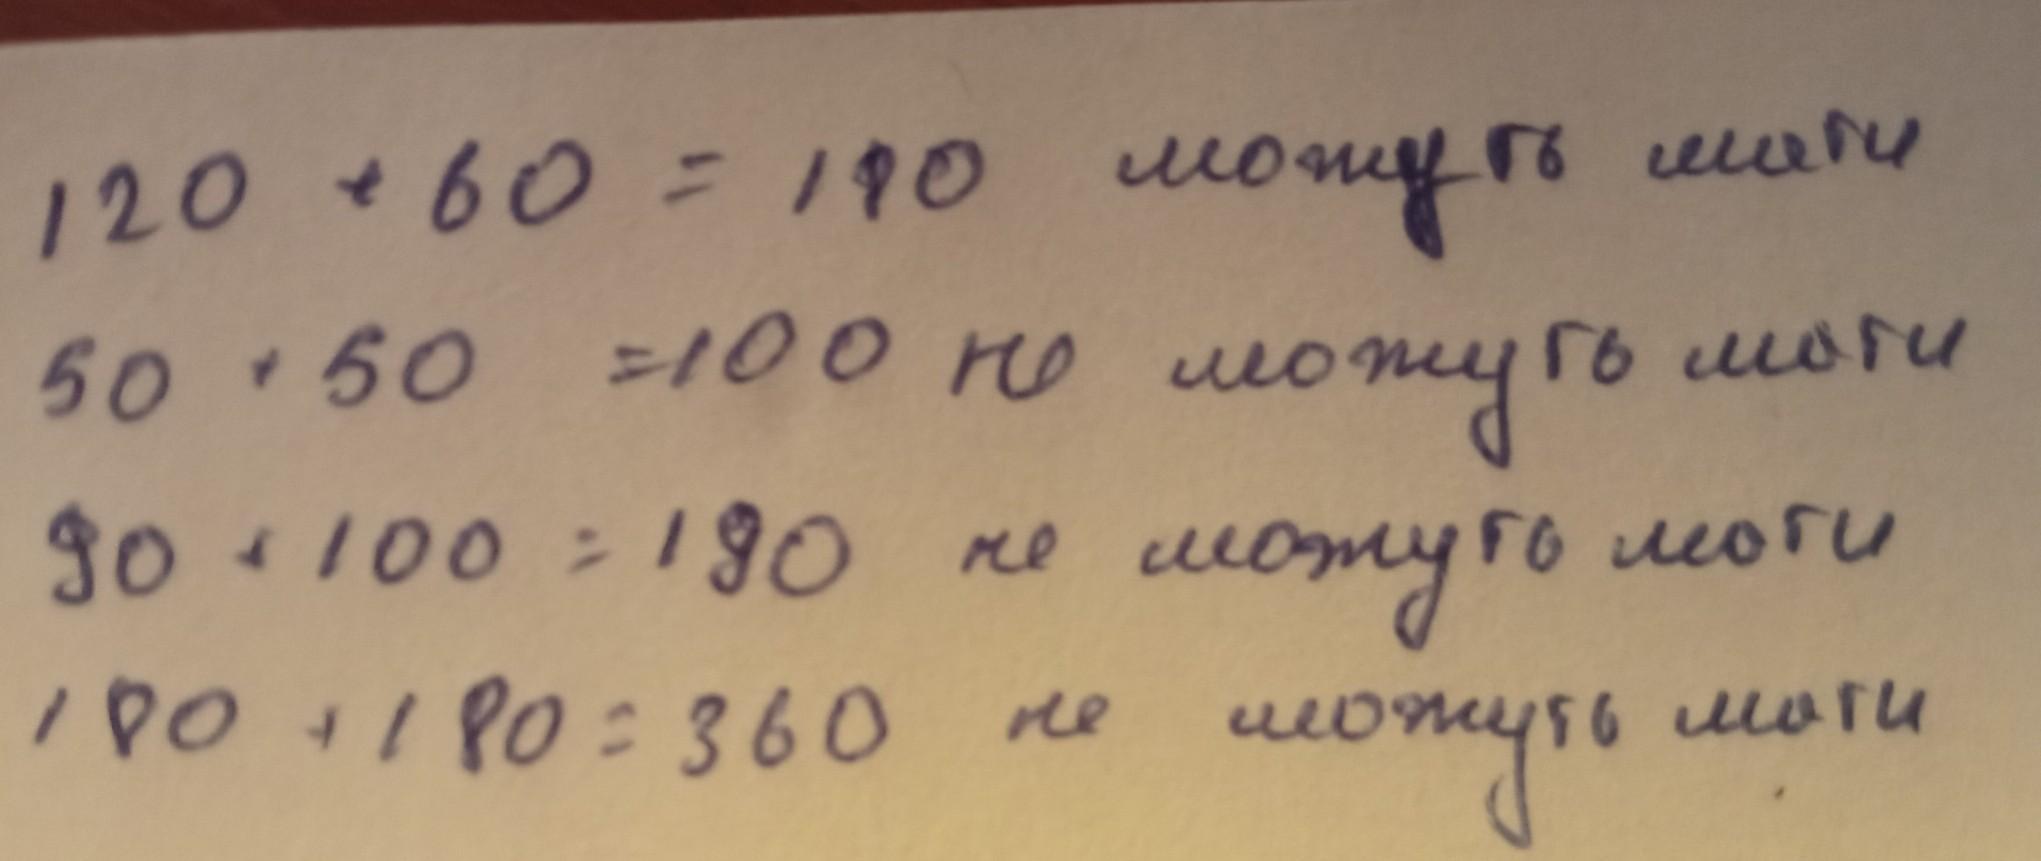 120 + 60 = 180 можуть мати
50 + 50 = 100 не можуть мати
90 + 100 = 190 не можуть мати
180 + 180 = 360 не можуть мати